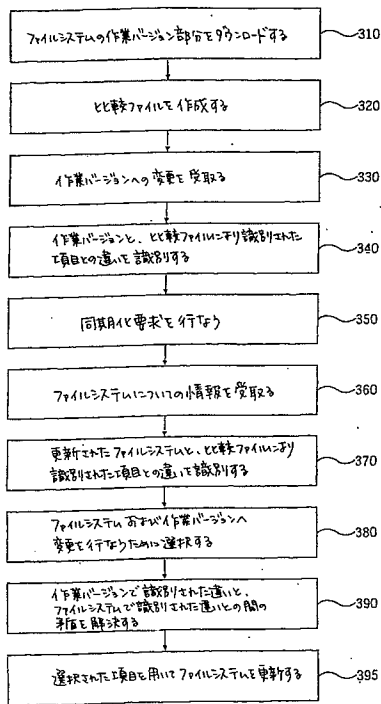 ファイルシステムの作業バージョン部分をダウンロードする
310
比較ファイルを作成する
320
作業バージョンへの変更を受取る
330
作業バージョンと、比較ファイルにより識別された
項目との違いを識別する
340
同期化要求を行なう
350
ファイルシステムについての情報を受取る
360
更新されたファイルシステムと、比較ファイルにより
識別された項目との違いを識別する
370
ファイルシステムおよび作業バージョンへ
変更を行なうために選択する
380
作業バージョンで識別された違いと、
ファイルシステムで識別された違いとの間の
矛盾を解決する
390
選択された項目を用いてファイルシステムを更新する
395